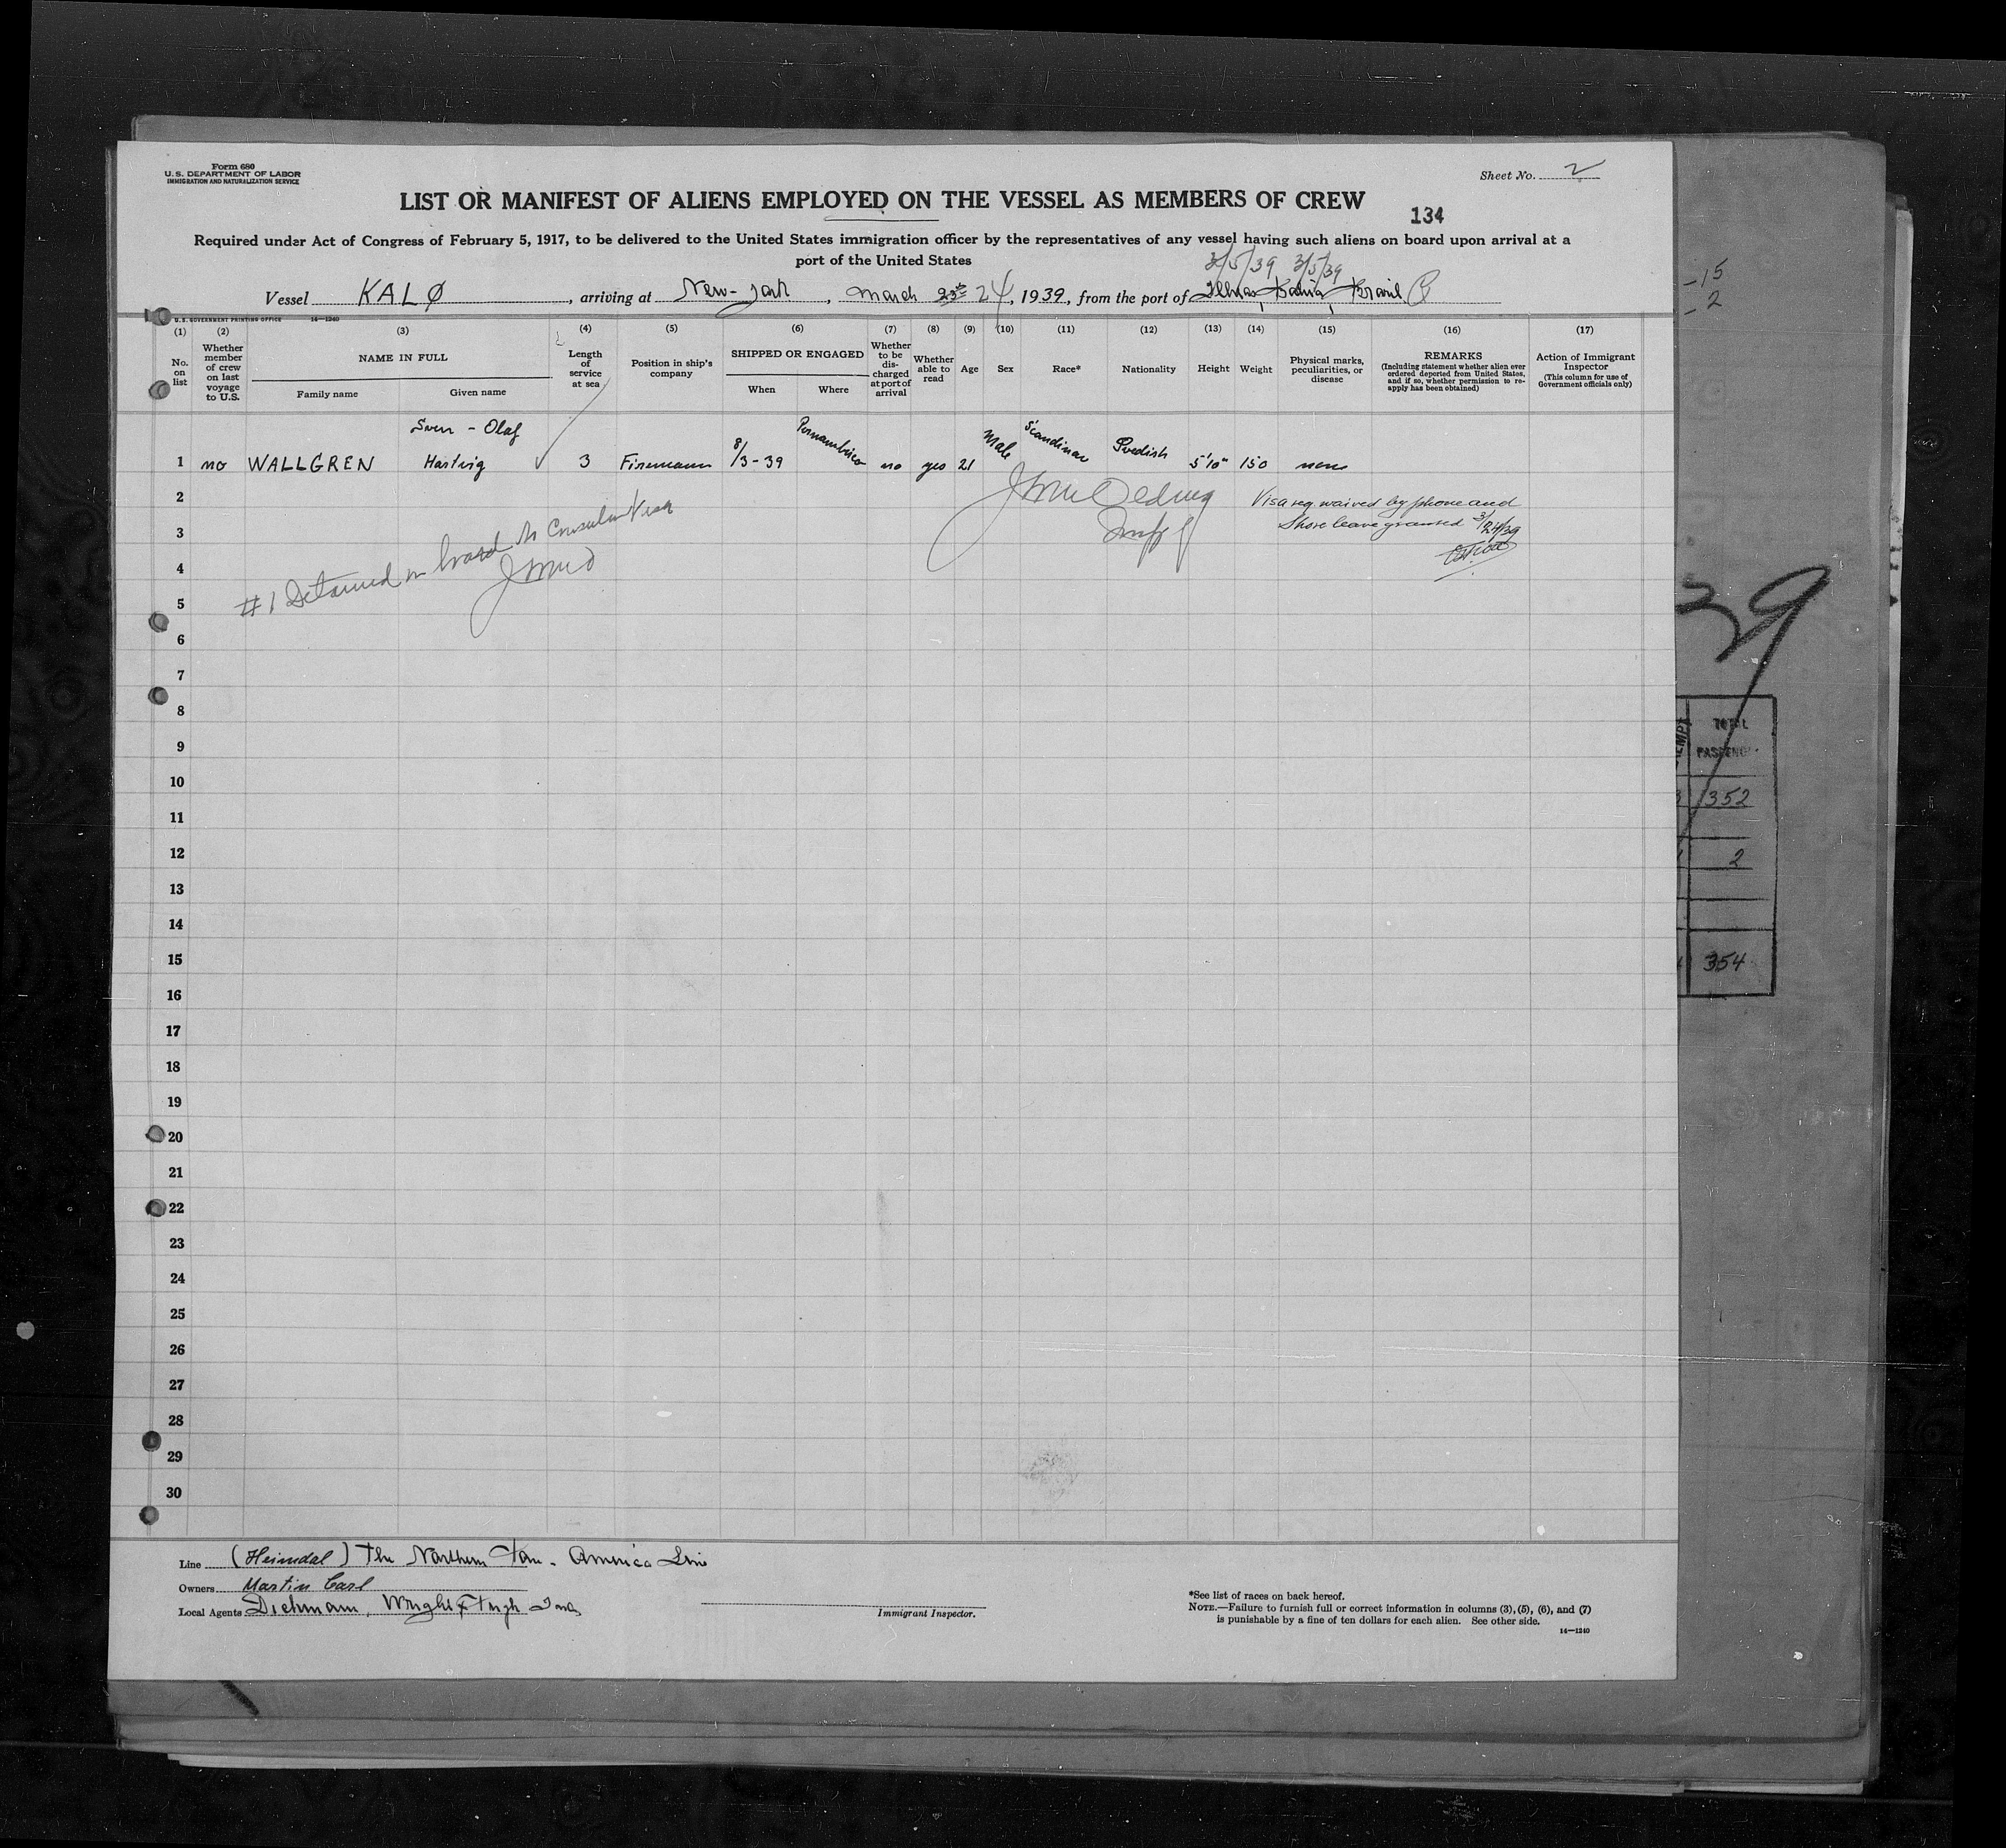 Form 680
U.S. DEPARTMENT OF LABOR
IMMIGRATION AND NATURALIZATION SERVICE
Sheet No. 2
LIST OR MANIFEST OF ALIENS EMPLOYED ON THE VESSEL AS MEMBERS OF CREW
134
Required under Act of Congress of February 5, 1917, to be delivered to the United States immigration officer by the representatives of any vessel having such aliens on board upon arrival at a
port of the United States
3/5/39 3/5/39
Vessel KALØ, arriving at New-York, March 23th 24, 1939, from the port of Ilheus, Bahia, Brazil
U.S. GOVERNMENT PRINTING OFFICE 14—1240
(1) (2) (3) (4) (5) (6) (7) (8) (9) (10) (11) (12) (13) (14) (15) (16) (17)
No. on list
Whether member of crew on last voyage to U.S.
NAME IN FULL
Family name
Given name
Length of service at sea
Position in ship's company
SHIPPED OR ENGAGED
When
Where
Whether to be discharged at port of arrival
Whether able to read
Age
Sex
Race*
Nationality
Height
Weight
Physical marks, peculiarities, or disease
REMARKS
(Including statement whether alien ever ordered deported from United States, and if so, whether permission to reapply has been obtained)
Action of Immigrant Inspector
(This column for use of Government officials only)
Sven - Olaf
1 no WALLGREN Hartvig 3 Firemann 8/3-39 Pernambuco no yes 21 Male Scandinav Swedish 5'10" 150 none
2
Visa req. waived by phone and
3
Shore leave granted 3/24/39
4
#1 Detained on board No Consular Visa
5
6
7
8
9
10
11
12
13
14
15
16
17
18
19
20
21
22
23
24
25
26
27
28
29
30
Line (Heimdal) The Northern Pan-America Line
Owners Martin Carl
Local Agents Dichmann, Wright & Pugh Inc
Immigrant Inspector.
*See list of races on back hereof.
NOTE.—Failure to furnish full or correct information in columns (3), (5), (6), and (7)
is punishable by a fine of ten dollars for each alien. See other side.
14—1240
-15
-2
39
TOTAL
352
2
354